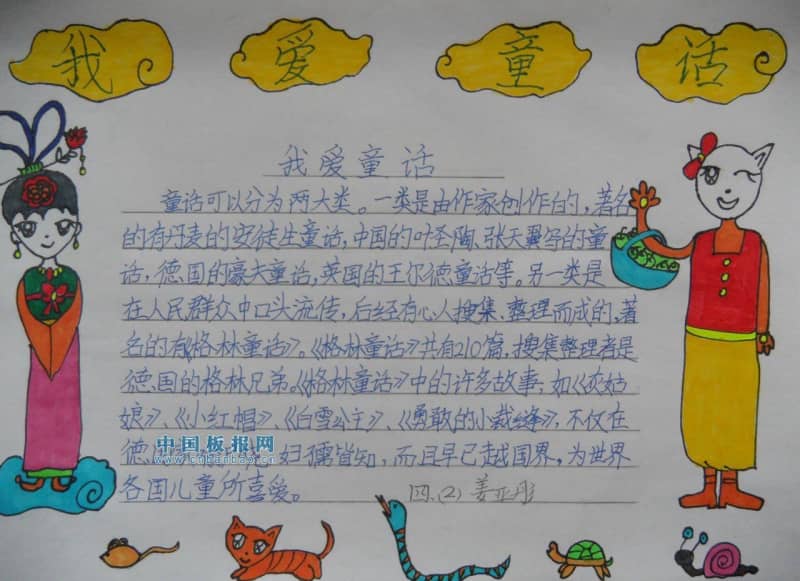 我 爱 童 话
我爱童话
童话可以分为两大类。一类是由作家创作的,著名
的有丹麦的安徒生童话,中国的叶圣陶、张天翼写的童
话,德国的豪夫童话,英国的王尔德童话等。另一类是
在人民群众中口头流传,后经有心人搜集、整理而成的,著
名的有《格林童话》。《格林童话》共有210篇,搜集整理者是
德国的格林兄弟。《格林童话》中的许多故事,如《灰姑
娘》、《小红帽》、《白雪公主》、《勇敢的小裁缝》,不仅在
中国板报网
www.cnbanbao.cn
德 妇孺皆知,而且早已越国界,为世界
各国儿童所喜爱。 四.(2) 姜亚彤